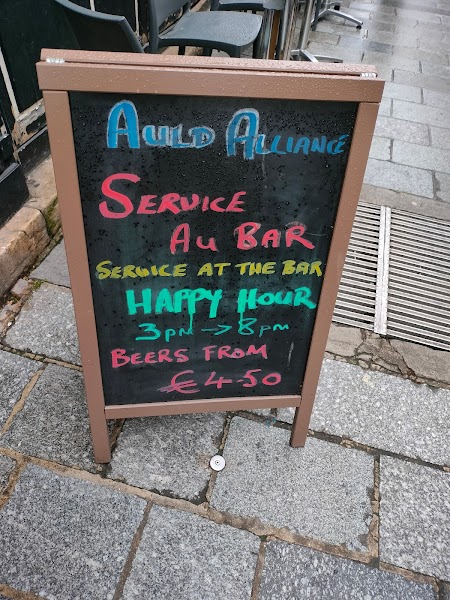 AULD ALLIANCÉ
SERVICE
AU BAR
SERVICE AT THE BAR
HAPPY HOUR
3PM → 8PM
BEERS FROM
€4.50